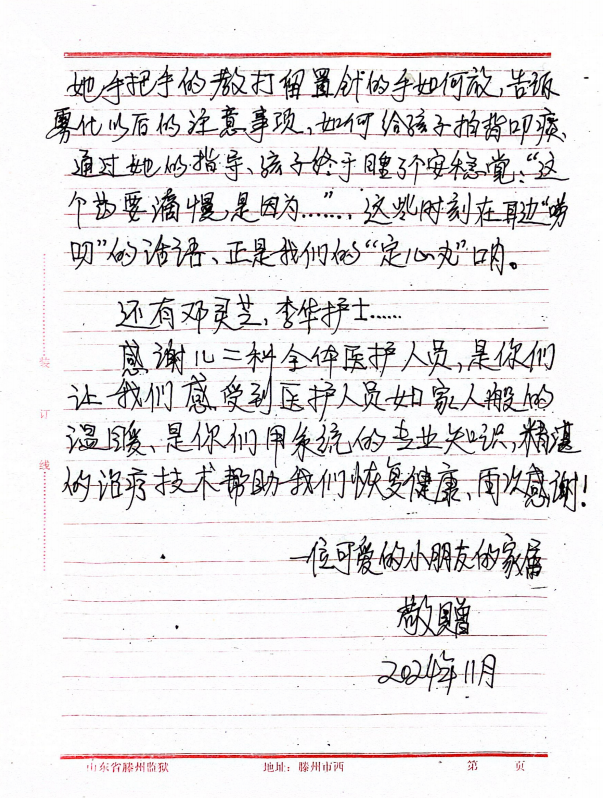 她手把手的教打留置针的手如何放，告诉
雾化以后的注意事项，如何给孩子拍背叩痰、
通过她的指导、孩子终于睡了个安稳觉：“这
个药要滴慢，是因为……”，这些时刻在耳边“唠
叨”的话语、正是我们的“定心丸”呐。
还有邓灵芝，李华护士……
感谢儿二科全体医护人员，是你们
让我们感受到医护人员如家人般的
温暖、是你们用系统的专业知识，精湛
的治疗技术帮助我们恢复健康、再次感谢！
一位可爱的小朋友的家属
敬赠
2024年11月
装
订
线
山东省滕州监狱 地址：滕州市西 第 页